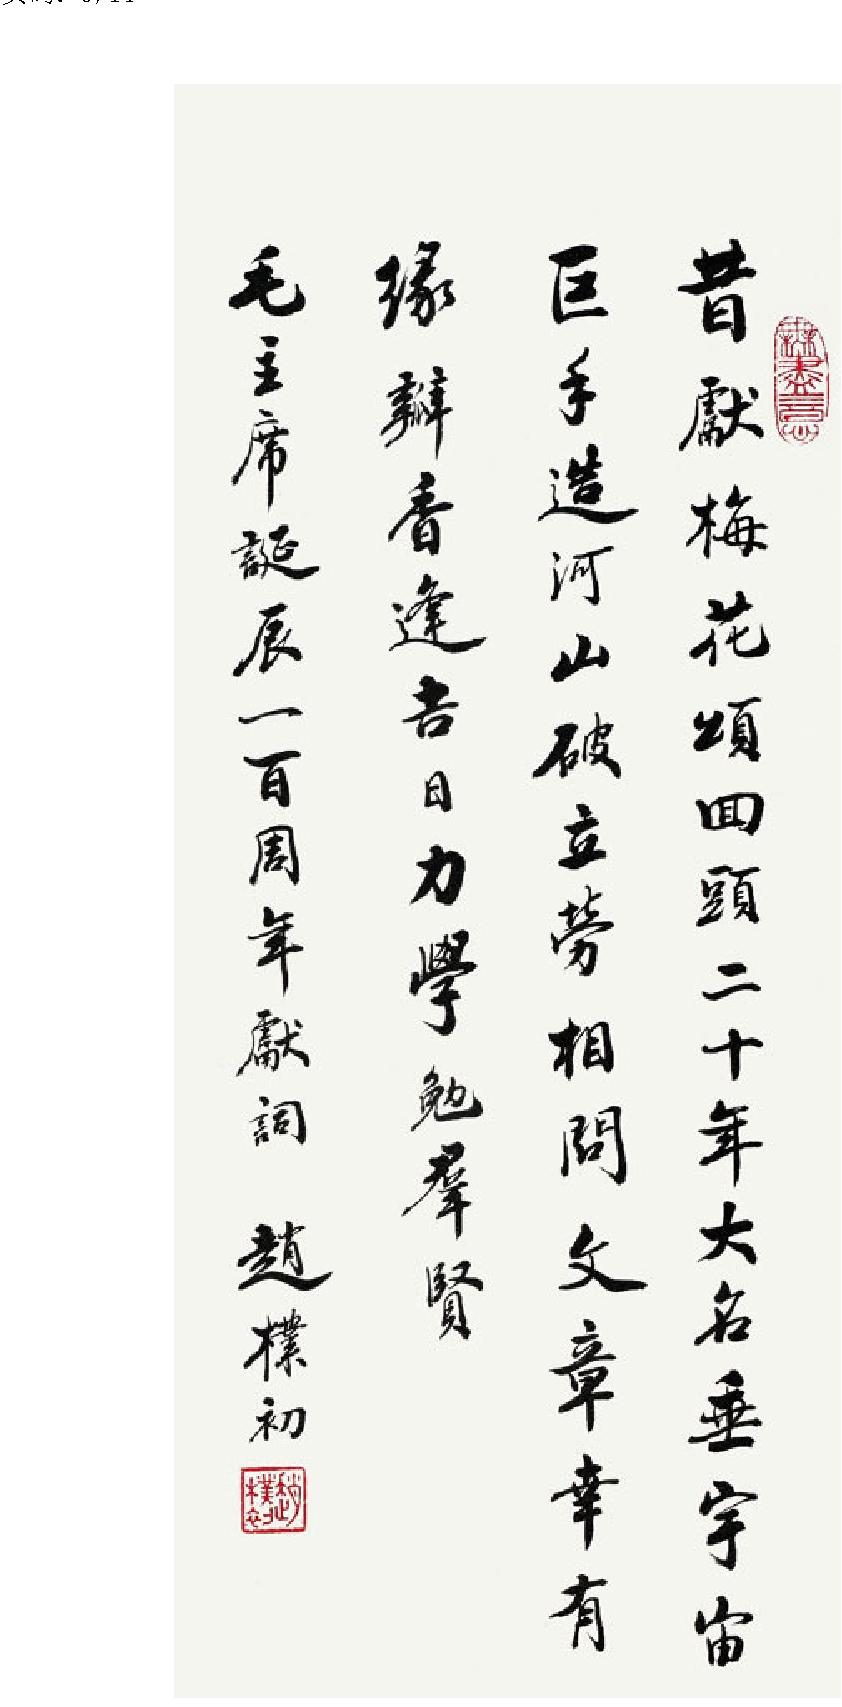 昔獻梅花頌回頭二十年大名垂宇宙
巨手造河山破立勞相問文章幸有
緣瓣香逢吉日力學勉羣賢
毛主席誕辰一百周年獻詞 趙樸初
無盡意
趙樸初